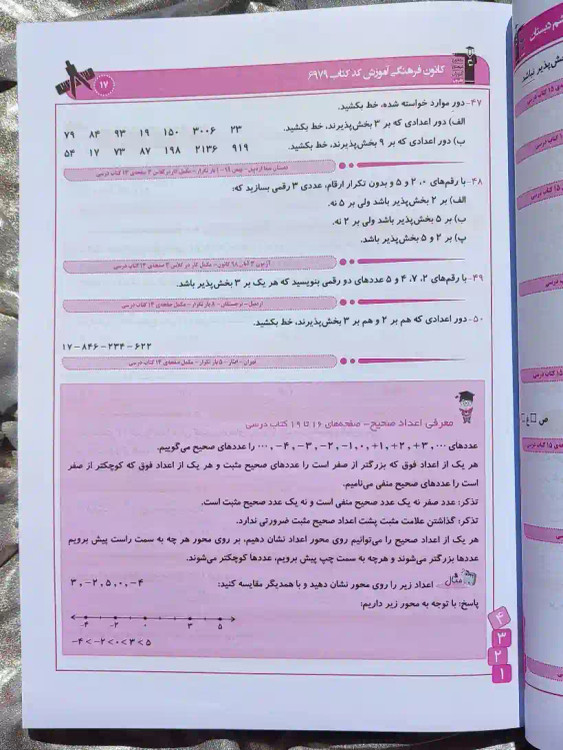 کانون فرهنگی آموزش کد کتاب ۶۹۷۹
۱۷
۴۷- دور موارد خواسته شده، خط بکشید.
الف) دور اعدادی که بر ۳ بخش‌پذیرند، خط بکشید. ۲۳ ۳۰۰۶ ۱۵۰ ۱۹ ۹۳ ۸۴ ۷۹
ب) دور اعدادی که بر ۹ بخش‌پذیرند، خط بکشید. ۹۱۹ ۲۱۳۶ ۱۹۸ ۸۷ ۷۳ ۱۷ ۵۴
۴۸- با رقم‌های ۰، ۲ و ۵ و بدون تکرار ارقام، عددی ۳ رقمی بسازید که:
الف) بر ۲ بخش‌پذیر باشد ولی بر ۵ نه.
ب) بر ۵ بخش‌پذیر باشد ولی بر ۲ نه.
پ) بر ۲ و ۵ بخش‌پذیر باشد.
۴۹- با رقم‌های ۲، ۷، ۴ و ۵ عددهای دو رقمی بنویسید که هر یک بر ۳ بخش‌پذیر باشد.
۵۰- دور اعدادی که هم بر ۲ و هم بر ۳ بخش‌پذیرند، خط بکشید.
۱۷ – ۸۴۶ – ۲۳۴ – ۶۲۲
معرفی اعداد صحیح - صفحه‌های ۱۶ تا ۱۹ کتاب درسی
عددهای ...,۳+,۲+,۱+,۰,۱-,۲-,۳-,۴-,... را عددهای صحیح می‌گوییم.
هر یک از اعداد فوق که بزرگتر از صفر است را عددهای صحیح مثبت و هر یک از اعداد فوق که کوچکتر از صفر
است را عددهای صحیح منفی می‌نامیم.
تذکر: عدد صفر نه یک عدد صحیح منفی است و نه یک عدد صحیح مثبت است.
تذکر: گذاشتن علامت مثبت پشت اعداد صحیح مثبت ضرورتی ندارد.
هر یک از اعداد صحیح را می‌توانیم روی محور اعداد نشان دهیم، بر روی محور هر چه به سمت راست پیش برویم
عددها بزرگتر می‌شوند و هرچه به سمت چپ پیش برویم، عددها کوچکتر می‌شوند.
مثال اعداد زیر را روی محور نشان دهید و با همدیگر مقایسه کنید: ۳,-۲,۵,۰,-۴
پاسخ: با توجه به محور زیر داریم:
-۴ -۲ ۰ ۳ ۵
-۴ < -۲ < ۰ < ۳ < ۵
۴
۳
۲
۱